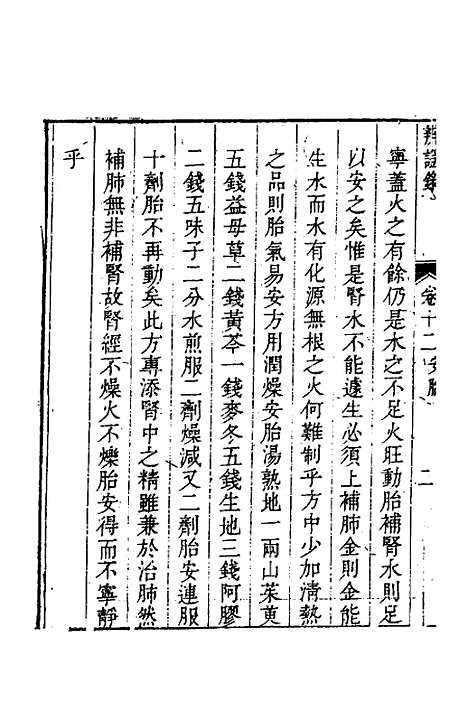 辨證錄
卷十二安胎
二
寧蓋火之有餘仍是水之不足火旺動胎補腎水則足
以安之矣惟是腎水不能遽生必須上補肺金則金能
生水而水有化源無根之火何難制乎方中少加清熱
之品則胎氣易安方用潤燥安胎湯熟地一兩山茱萸
五錢益母草二錢黃芩一錢麥冬五錢生地三錢阿膠
二錢五味子二分水煎服二劑燥減又二劑胎安連服
十劑胎不再動矣此方專添腎中之精雖兼於治肺然
補肺無非補腎故腎經不燥火不爍胎安得而不寧靜
乎